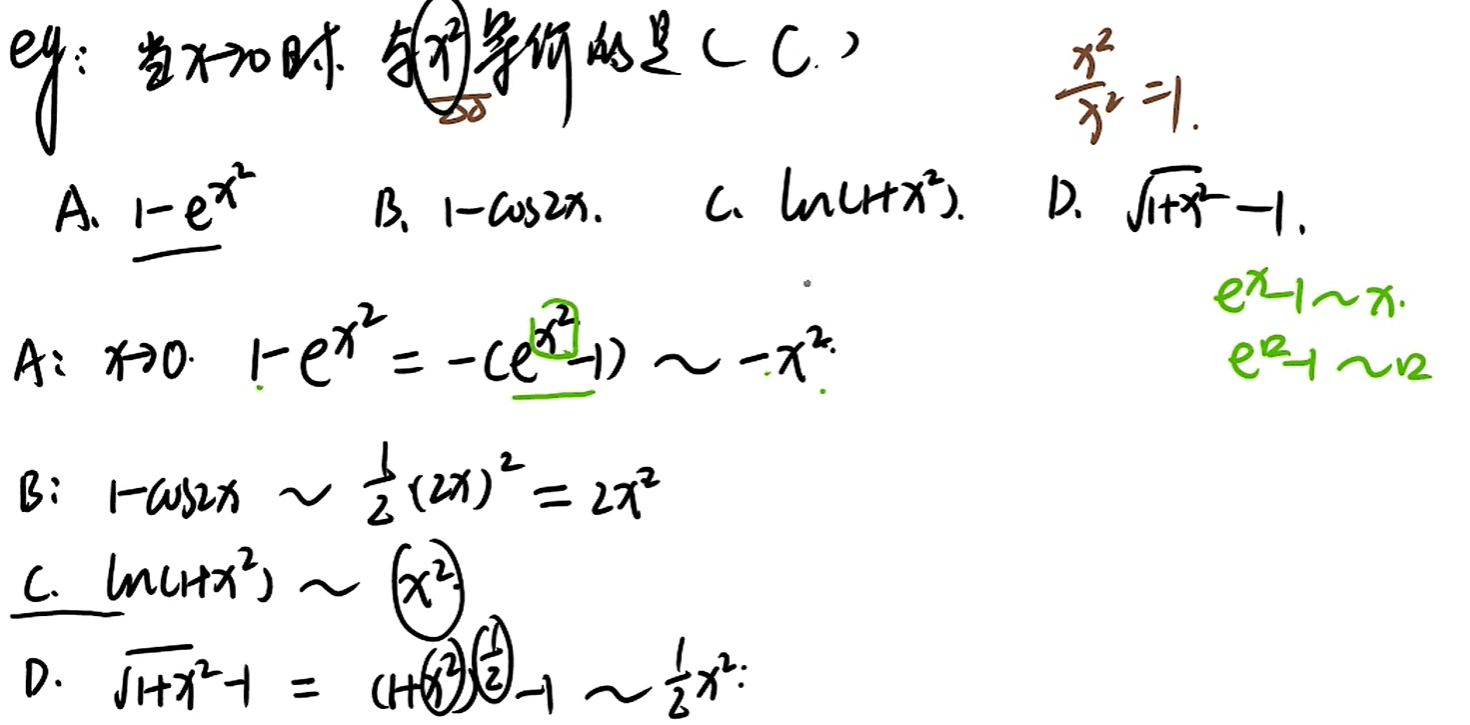 eg: 当x→0时. 与x²等价的是( C. )
x²/x² =1.
A. 1-e^{x²} B. 1-cos2x. C. ln(1+x²). D. √(1+x²) -1.
e^x-1~x.
A: x→0. 1-e^{x²} = -(e^{x²}-1) ~ -x².
B: 1-cos2x ~ 1/2 (2x)² = 2x²
C. ln(1+x²) ~ x²
D. √(1+x²)-1 = (1+x²)^{1/2} -1 ~ 1/2 x².